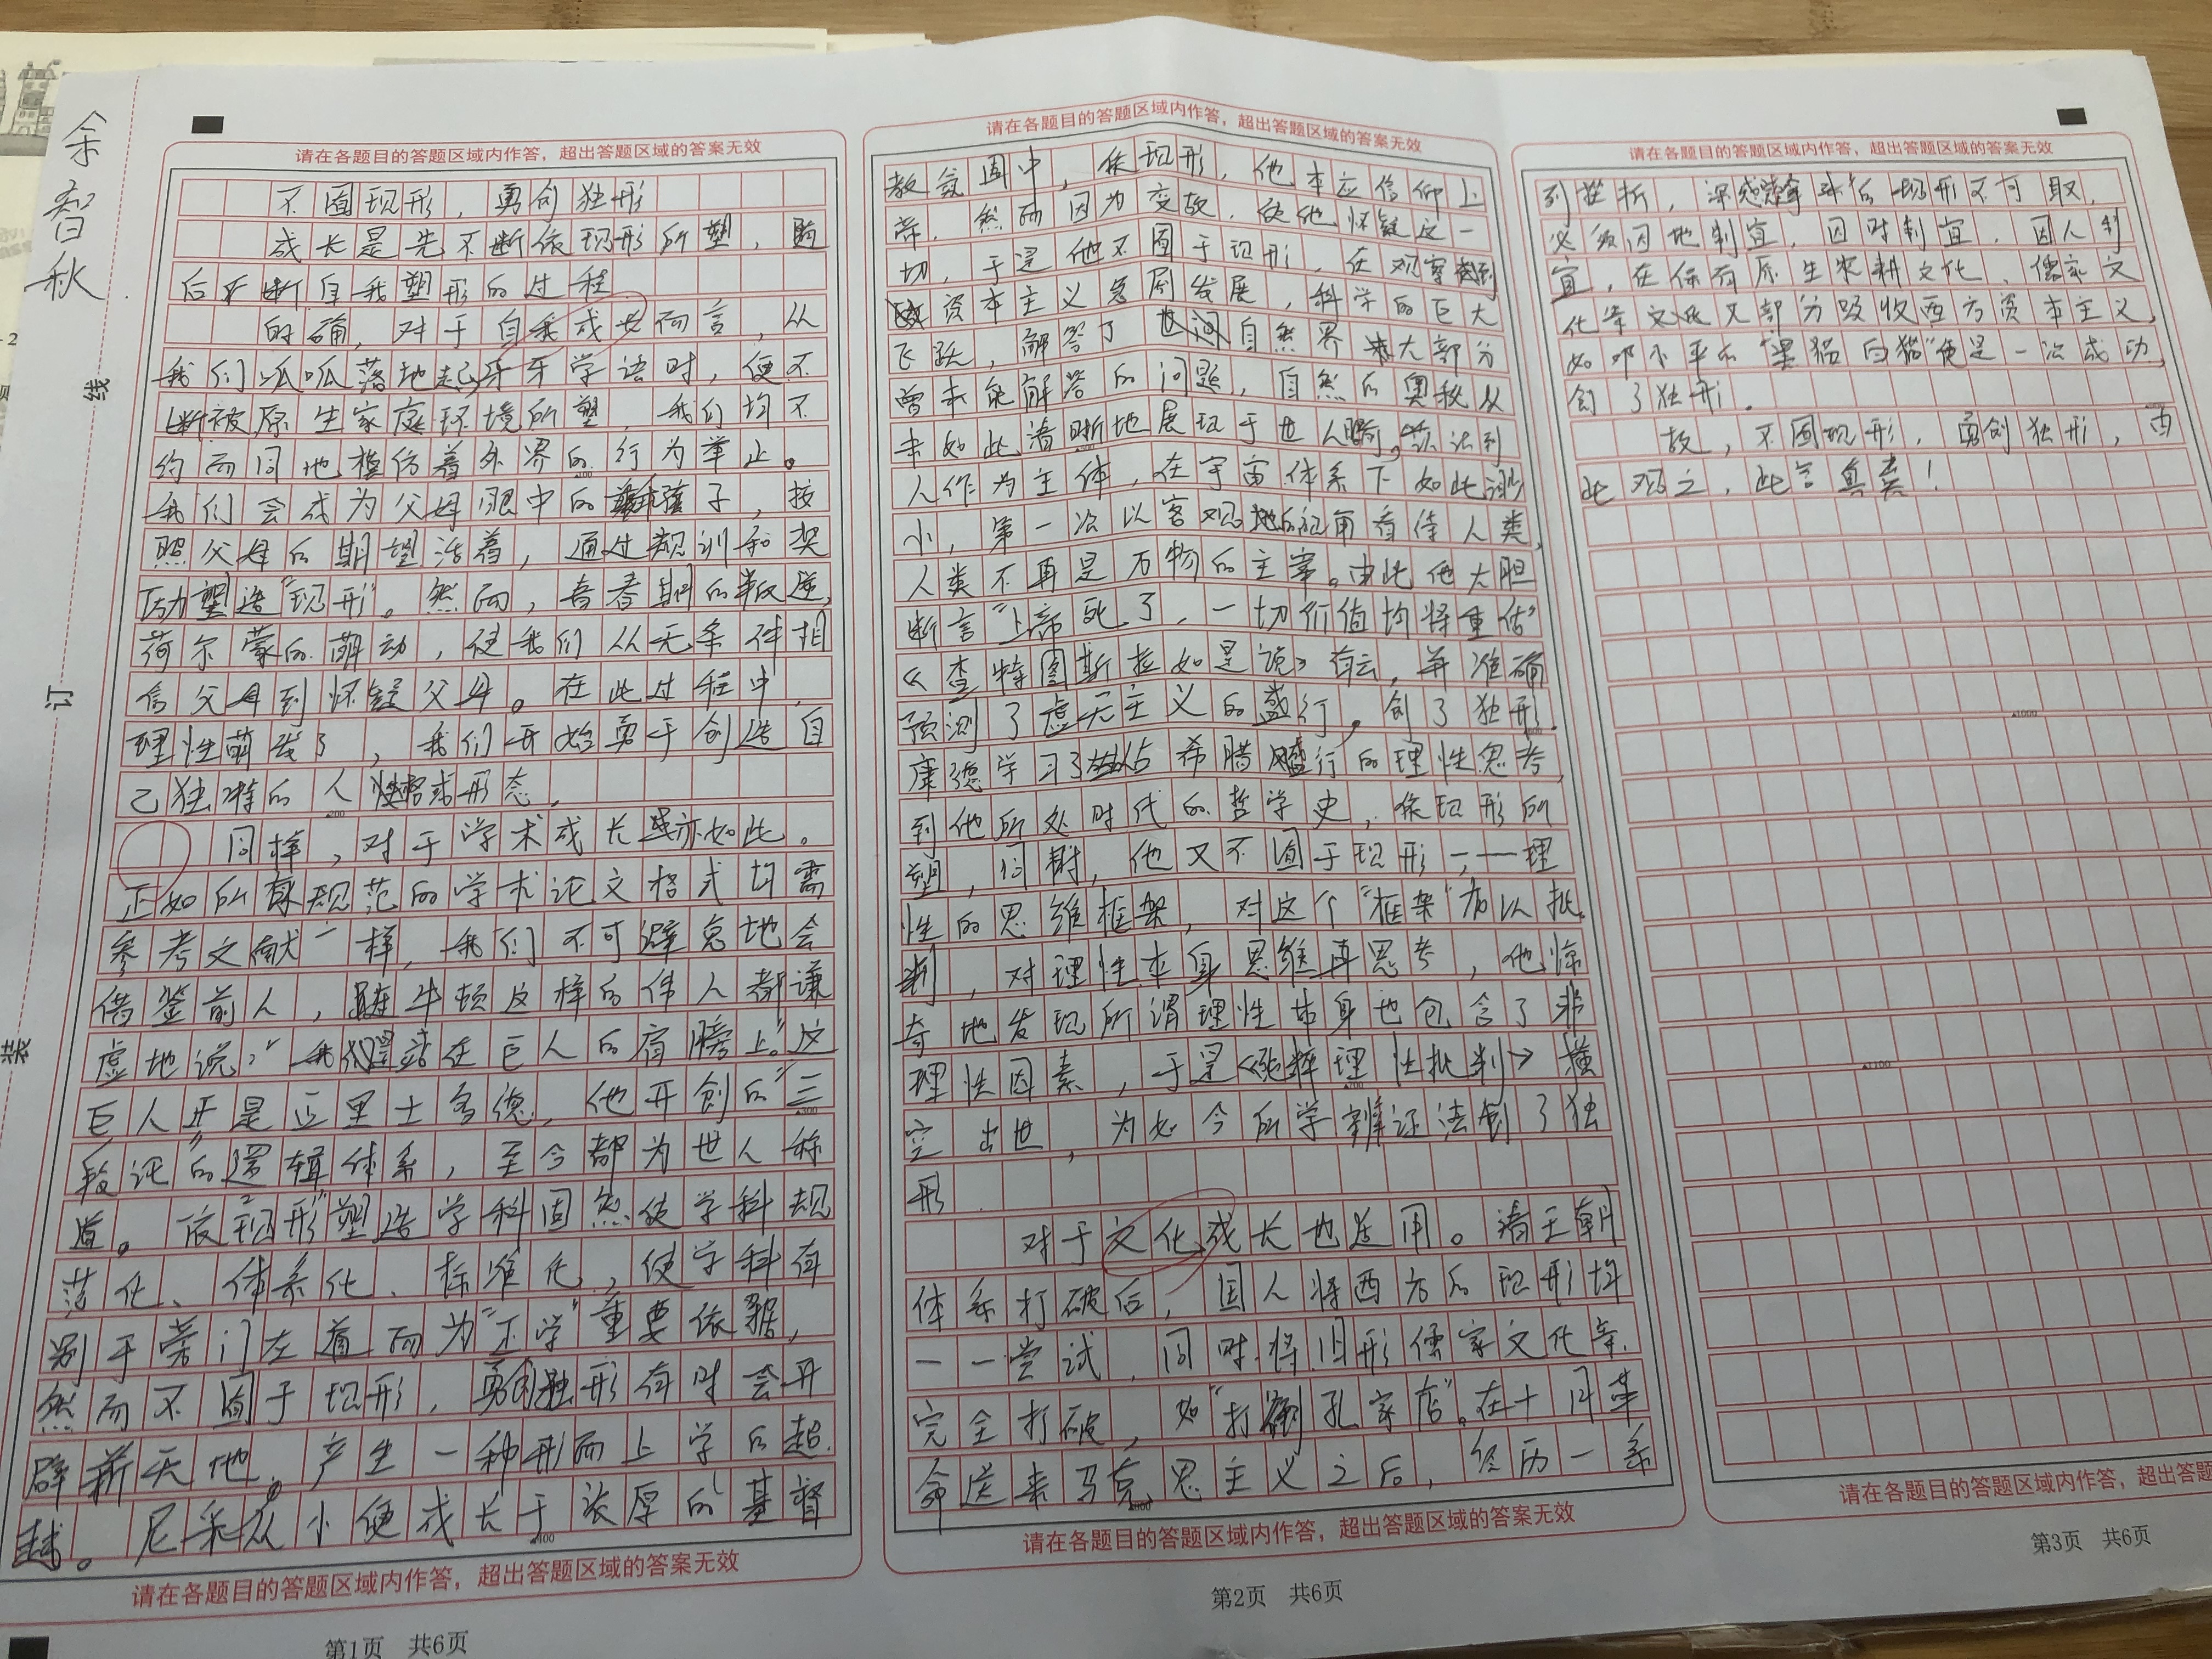 余智秋
线
订
装
请在各题目的答题区域内作答，超出答题区域的答案无效
不囿现形，勇创独形
成长是先不断依现形所塑，
后不断自我塑形的过程
的确，对于自我成长而言，从
我们呱呱落地起，牙牙学语时，便不
断被原生家庭环境所塑，我们均不
约而同地模仿着外界的行为举止。
我们会成为父母眼中的孩子，按
照父母的期望活着，通过规训和奖
励塑造“现形”。然而，青春期的叛逆，
荷尔蒙的萌动，使我们从无条件相
信父母到怀疑父母。在此过程中，
理性萌发了，我们开始勇于创造自
己独特的人性格或形态，
同样，对于学术成长亦如此。
正如所有规范的学术论文格式均需
参考文献一样，我们不可避免地会
借鉴前人，牛顿这样的伟人都谦
虚地说：“我是站在巨人的肩膀上。”这
巨人正是亚里士多德，他开创的“三
段论”的逻辑体系，至今都为世人称
道。依“现形”塑造学科固然使学科规
范化、体系化、标准化，使学科有
别于旁门左道而为“正学”重要依据，
然而不囿于现形，勇创独形有时会开
辟新天地，产生一种形而上学的超
越。尼采从小便成长于浓厚的基督
请在各题目的答题区域内作答，超出答题区域的答案无效
第1页 共6页
请在各题目的答题区域内作答，超出答题区域的答案无效
教氛围中，依现形，他本应信仰上
帝，然而因为变故，使他怀疑这一
切，于是他不囿于现形，在观察到
资本主义急剧发展，科学的巨大
飞跃，解答了世间自然界大部分
曾未能解答的问题，自然的奥秘从
未如此清晰地展现于世人，认识到
人作为主体，在宇宙体系下如此渺
小，第一次以客观地的视角看待人类，
人类不再是万物的主宰。由此他大胆
断言“上帝死了，一切价值均将重估”
《查特图斯拉如是说》有云，并准确
预测了虚无主义的盛行，创了独形。
康德学习了从古希腊盛行的理性思考，
到他所处时代的哲学史，依现形所
塑，同时，他又不囿于现形——理
性的思维框架，对这个“框架”加以批
判，对理性本身思维再思考，他惊
奇地发现所谓理性本身也包含了非
理性因素，于是《纯粹理性批判》横
空出世，为如今所学辨证法创了独
形
对于文化成长也适用。清王朝
体系打破后，国人将西方的现形均
一一尝试，同时将旧形儒家文化等
完全打破，如“打倒孔家店”。在十月革
命送来马克思主义之后，经历一系
请在各题目的答题区域内作答，超出答题区域的答案无效
第2页 共6页
请在各题目的答题区域内作答，超出答题区域的答案无效
到挫折，深感拿来的现形不可取，
必须因地制宜，因时制宜，因人制
宜，在保有原生农耕文化、儒家文
化等文化又部分吸收西方资本主义，
如邓小平的“黑猫白猫”便是一次成功，
创了独形。
故，不囿现形，勇创独形，由
此观之，此言真矣！
请在各题目的答题区域内作答，超出答题
第3页 共6页